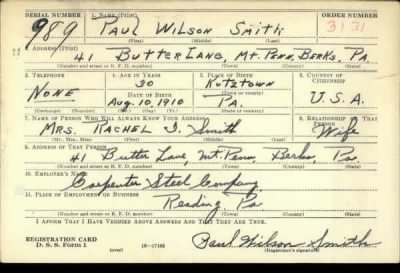 SERIAL NUMBER 1. NAME (Print) ORDER NUMBER
989 PAUL WILSON SMITH 3131
(First) (Middle) (Last)
2. ADDRESS (Print)
41 BUTTER LANE, MT. PENN, BERKS, PA.
(Number and street or R. F. D. number) (Town) (County) (State)
3. TELEPHONE 4. AGE IN YEARS 5. PLACE OF BIRTH 6. COUNTRY OF CITIZENSHIP
30 KUTZTOWN
NONE DATE OF BIRTH (Town or county)
AUG. 10, 1910 PA. U.S.A.
(Exchange) (Number) (Mo.) (Day) (Yr.) (State or country)
7. NAME OF PERSON WHO WILL ALWAYS KNOW YOUR ADDRESS 8. RELATIONSHIP OF THAT PERSON
MRS. RACHEL I. Smith Wife
(Mr., Mrs., Miss) (First) (Middle) (Last)
9. ADDRESS OF THAT PERSON
41 Butter Lane, Mt. Penn, Berks, Pa.
(Number and street or R. F. D. number) (Town) (County) (State)
10. EMPLOYER'S NAME
Carpenter Steel Company
11. PLACE OF EMPLOYMENT OR BUSINESS
Reading Pa
(Number and street or R. F. D. number) (Town) (County) (State)
I AFFIRM THAT I HAVE VERIFIED ABOVE ANSWERS AND THAT THEY ARE TRUE.
REGISTRATION CARD
D. S. S. Form 1 (over) 16—17105 Paul Wilson Smith
(Registrant's signature)